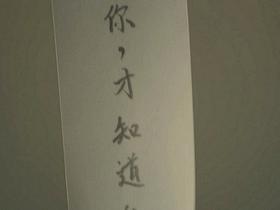 你，才知道